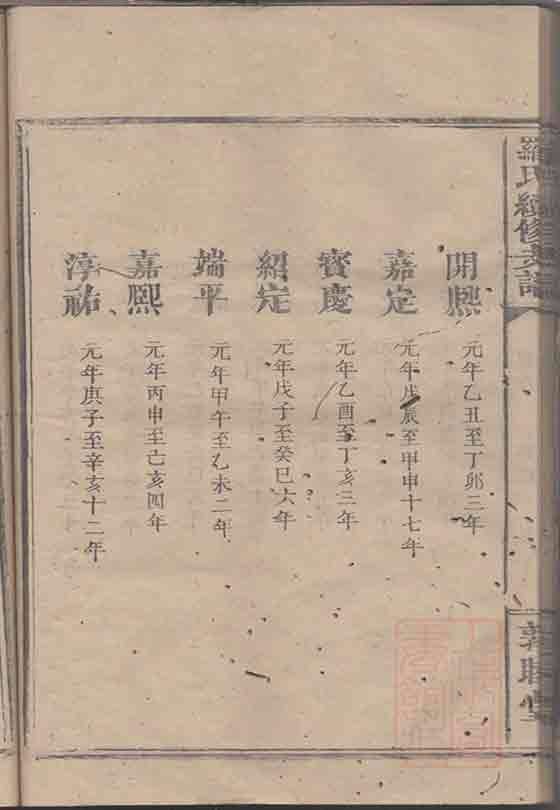 羅氏續修支譜
開熙 元年乙丑至丁卯三年
嘉定 元年戊辰至甲申十七年
寶慶 元年乙酉至丁亥三年
紹定 元年戊子至癸巳六年
端平 元年甲午至乙未二年
嘉熙 元年丙申至己亥四年
淳祐 元年庚子至辛亥十二年
敦睦堂